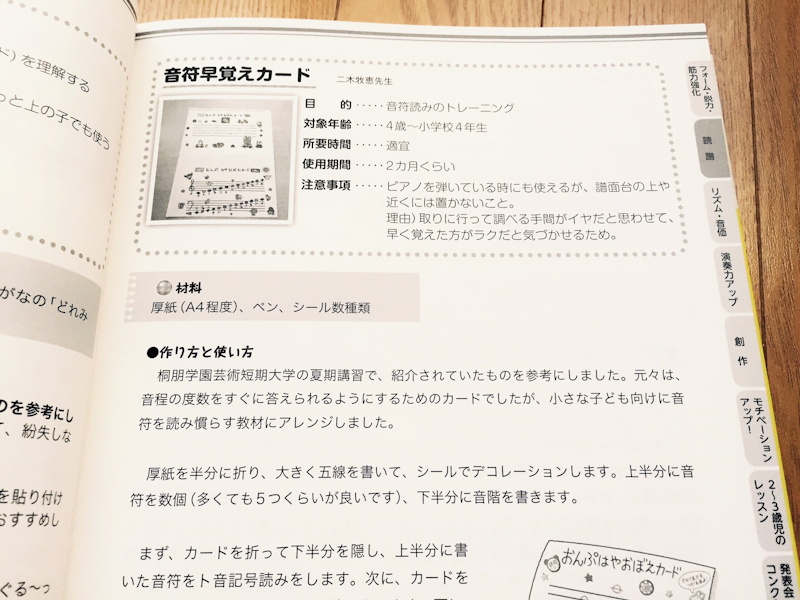 ド）を理解する
っと上の子でも使う
がなの「どれみ
のを参考にし
、紛失しな
を貼り付け
おすすめし
ぐる〜っ
音符早覚えカード
二木牧恵先生
目　的・・・・・音符読みのトレーニング
対象年齢・・・・・4歳〜小学校4年生
所要時間・・・・・適宜
使用期間・・・・・2カ月くらい
注意事項・・・・・ピアノを弾いている時にも使えるが、譜面台の上や
近くには置かないこと。
理由）取りに行って調べる手間がイヤだと思わせて、
早く覚えた方がラクだと気づかせるため。
材料
厚紙（A4程度）、ペン、シール数種類
●作り方と使い方
桐朋学園芸術短期大学の夏期講習で、紹介されていたものを参考にしました。元々は、
音程の度数をすぐに答えられるようにするためのカードでしたが、小さな子ども向けに音
符を読み慣らす教材にアレンジしました。
厚紙を半分に折り、大きく五線を書いて、シールでデコレーションします。上半分に音
符を数個（多くても5つくらいが良いです）、下半分に音階を書きます。
まず、カードを折って下半分を隠し、上半分に書
いた音符をト音記号読みをします。次に、カードを
おんぷはやおぼえカード
フォーム・脱力・
筋力強化
読譜
リズム・音価
演奏力アップ
創作
モチベーション
アップ！
2〜3歳児の
レッスン
発表会
コンク